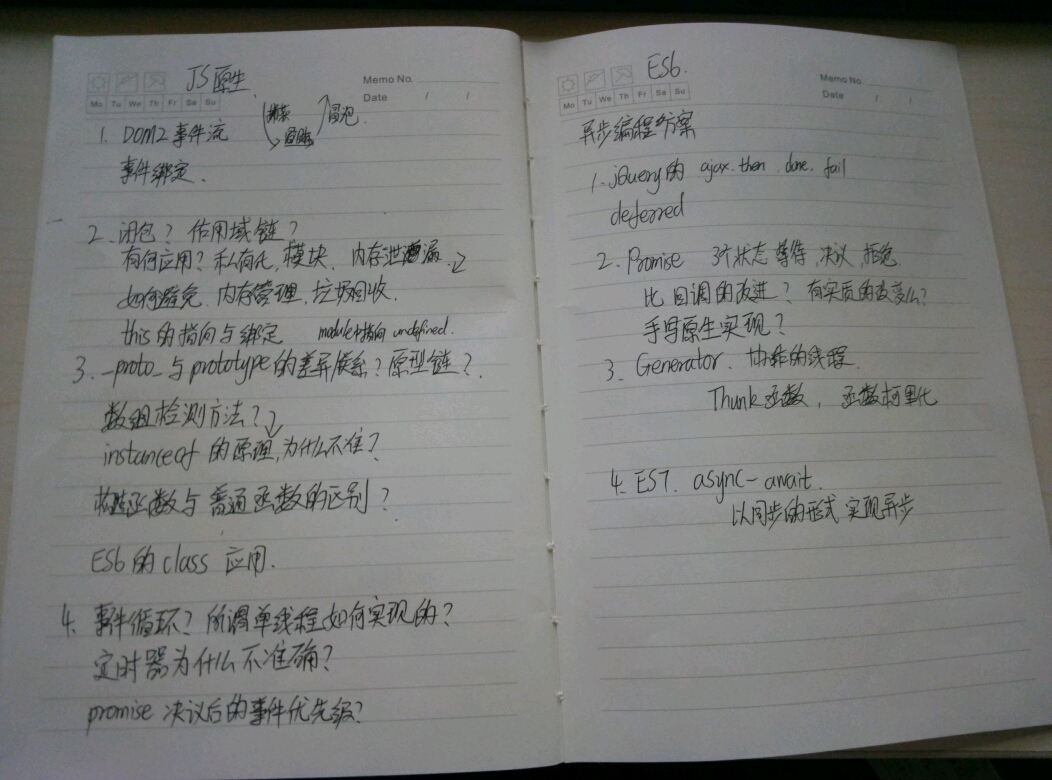 JS原生
Memo No.
Mo Tu We Th Fr Sa Su
Date / /
1. DOM2事件流 捕获 冒泡
事件绑定.
2. 闭包？作用域链？
有何应用？私有化, 模块、内存泄漏.
如何避免. 内存管理, 垃圾回收.
this的指向与绑定 module中指向 undefined.
3. _proto_与prototype的差异关系？原型链？
数组检测方法？
instanceof 的原理,为什么不准？
构造函数与普通函数的区别？
ES6的class 应用.
4. 事件循环？所谓单线程如何实现的？
定时器为什么不准确？
promise 决议后的事件优先级？
ES6.
Memo No.
Mo Tu We Th Fr Sa Su
Date / /
异步编程方案
1. jQuery的 ajax. then. done. fail
deferred
2. Promise 3个状态 等待, 决议, 拒绝
比回调的改进？有实质的改变么？
手写原生实现？
3. Generator. 协作的线程.
Thunk函数, 函数柯里化
4. ES7. async-await.
以同步的形式实现异步